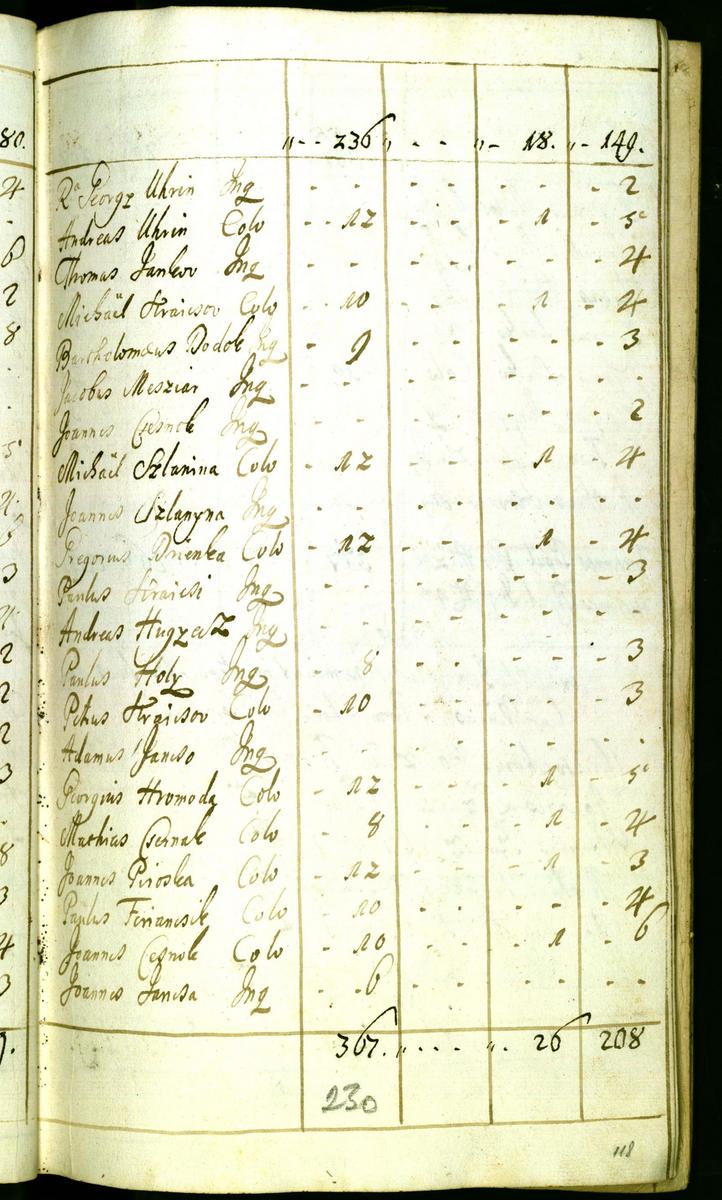 „ - - 236 „ - - „ - 18. „ - 149.
Ra Georg Uhrin Inq - - - - - - - 2
Andreas Uhrin Colo - - 12 - - - - 1 - 5
Thomas Jankov Inq - - - - - - - 4
Michaël Krajcsov Colo - 10 - - - 1 - 4
Bartholomæus Dodok Inq - 9 - - - - - 3
Jacobus Mesziar Inq - - - - - - - -
Joannes Csesnok Inq - - - - - - - 2
Michaël Szlanina Colo - 12 - - - 1 - 4
Joannes Szlanyna Inq - - - - - - - -
Gregorius Drienka Colo - 12 - - - 1 - 4
Paulus Kraicsi Inq - - - - - - - 3
Andreas Inq - - - - - - - -
Paulus Holy Inq - 8 - - - - - 3
Petrus Kraicsov Colo - 10 - - - - - 3
Adamus Jancso Inq - - - - - - - -
Georgius Hromoda Colo - 12 - - - 1 - 5
Mathias Csernak Colo - 8 - - - 1 - 4
Joannes Piroska Colo - 12 - - - 1 - 3
Paulus Feriancsik Colo - 10 - - - - - 4
Joannes Csesnok Colo - 10 - - - 1 - 6
Joannes Jancsa Inq - - 6 - - - - - -
367. „ - - - „ - 26 208
230
118
80.
4
-
6
2
8